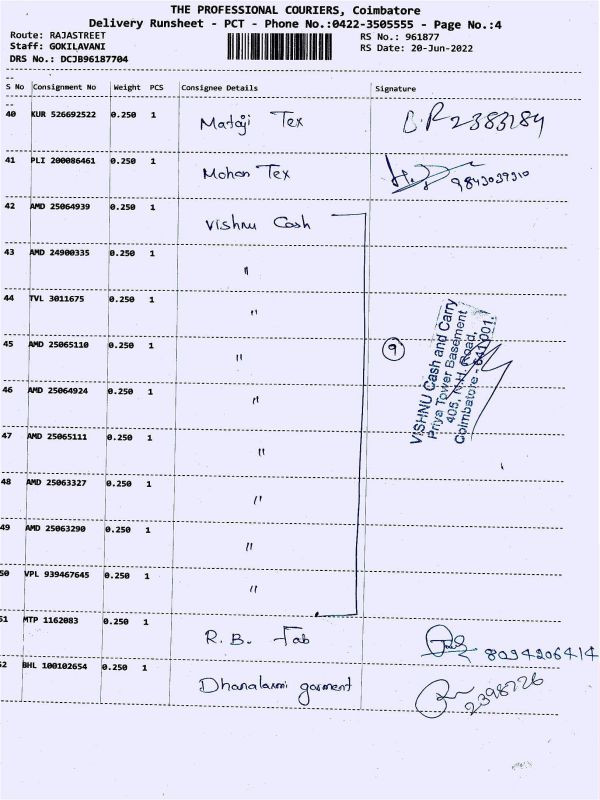 THE PROFESSIONAL COURIERS, Coimbatore
Delivery Runsheet - PCT - Phone No.:0422-3505555 - Page No.:4
Route: RAJASTREET
RS No.: 961877
Staff: GOKILAVANI
RS Date: 20-Jun-2022
DRS No.: DCJB96187704
S No Consignment No Weight PCS Consignee Details Signature
40 KUR 526692522 0.250 1 Mataji Tex 2383284
41 PLI 200086461 0.250 1 Mohan Tex 9843039310
42 AMD 25064939 0.250 1 Vishnu Cash
43 AMD 24900335 0.250 1 "
44 TVL 3011675 0.250 1 "
45 AMD 25065110 0.250 1 " 9
46 AMD 25064924 0.250 1 "
47 AMD 25065111 0.250 1 "
48 AMD 25063327 0.250 1 "
49 AMD 25063290 0.250 1 "
50 VPL 939467645 0.250 1 "
VISHNU Cash and Carry
Priya Tower Basement
405, N.H. Road,
Coimbatore - 641 001.
51 MTP 1162083 0.250 1 R.B. Fab 8094206414
52 BHL 100102654 0.250 1 Dhanalaxmi garment 2398726